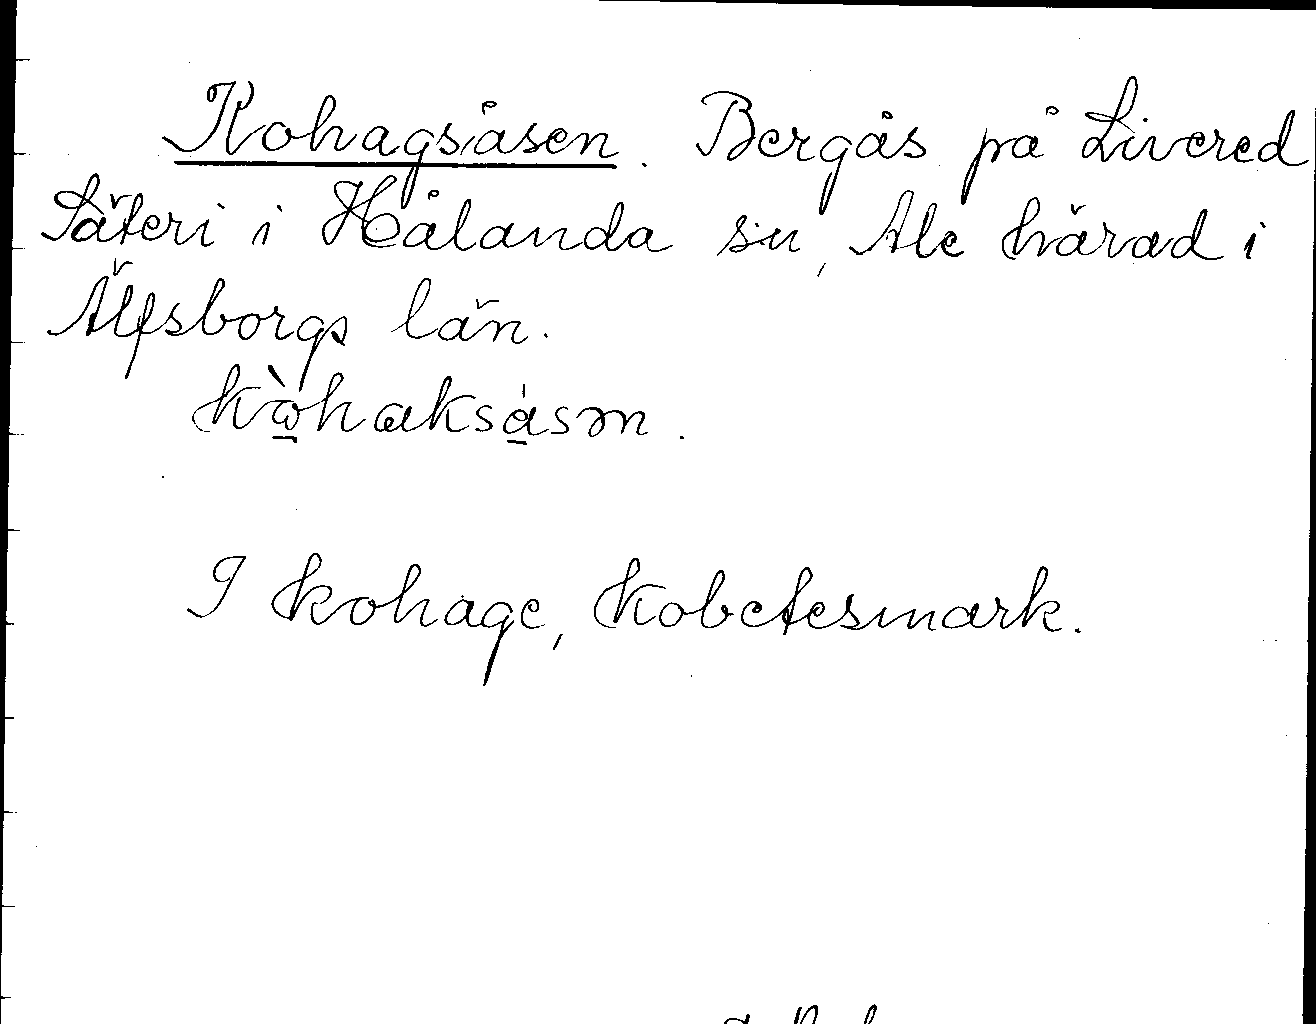 Kohagsåsen. Bergås på Livered
Säteri i Hålanda sn, Ale härad i
Älfsborgs län.
kὼ̱haksa̱̍sən.
I kohage, kobetesmark.